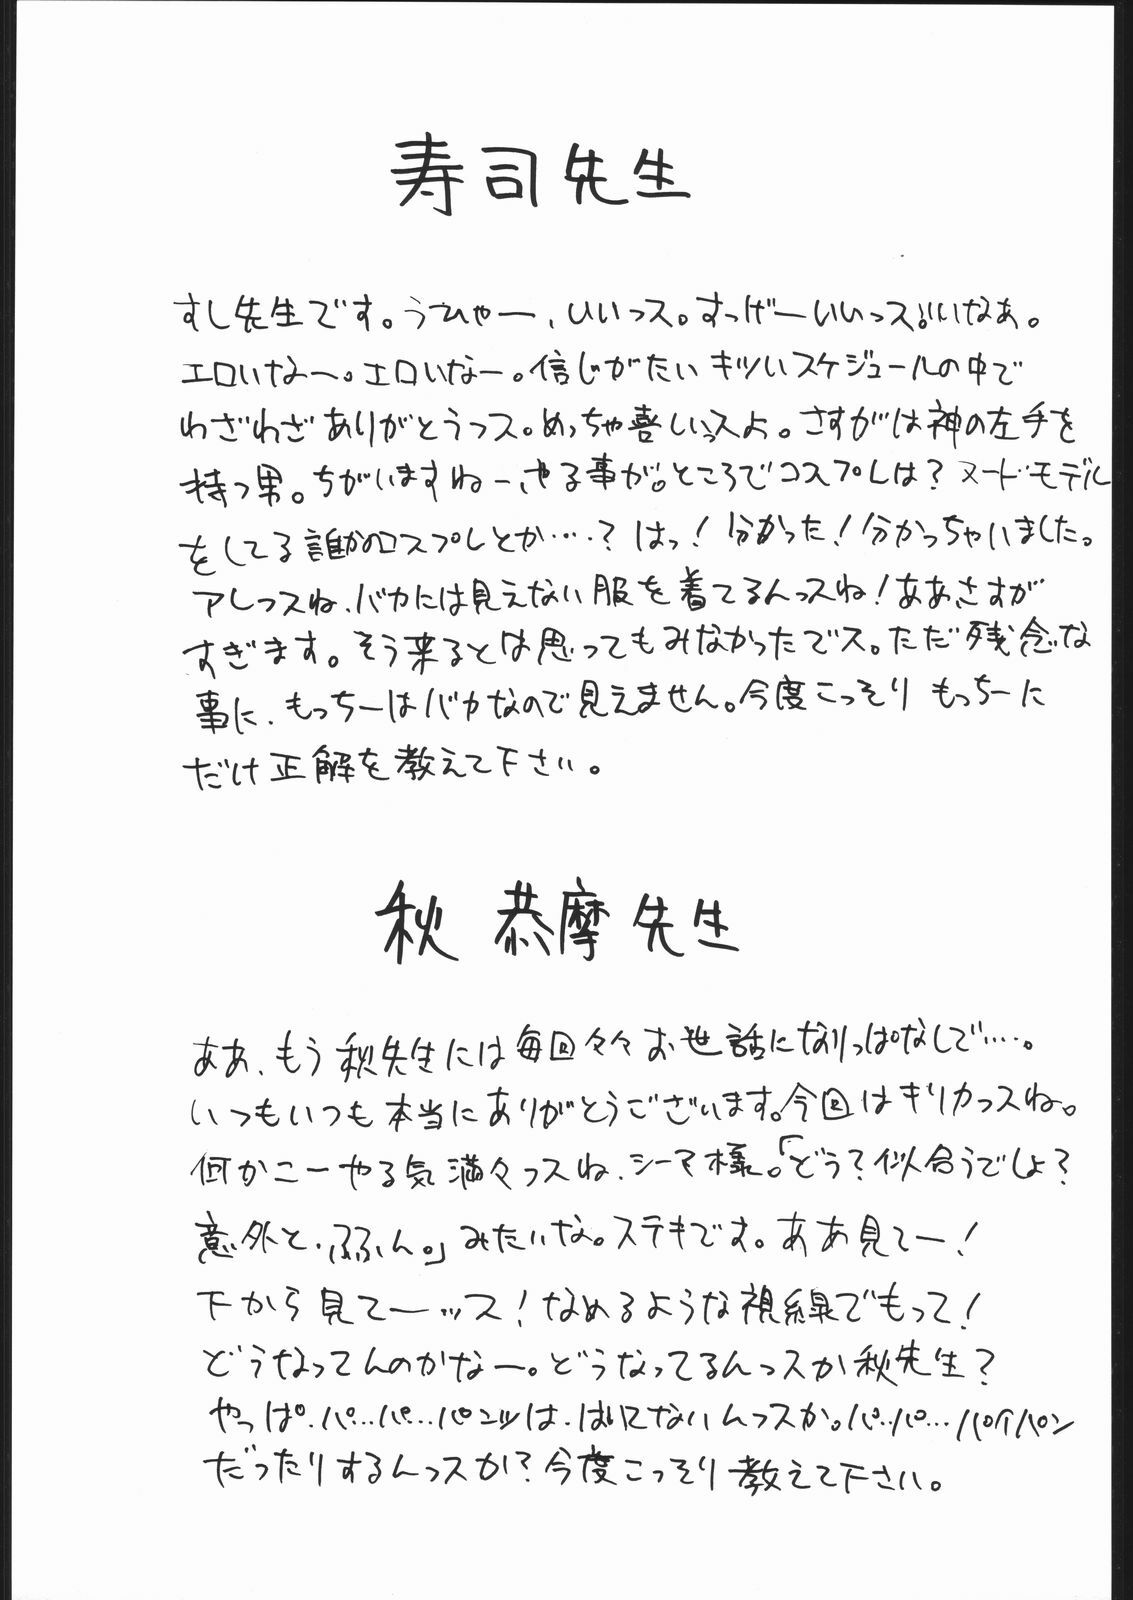 寿司先生
すし先生です。うひゃー、いいっス。すっげーいいっス。いいなぁ。
エロいなー。エロいなー。信じがたいキツいスケジュールの中で
わざわざありがとうっス。めっちゃ喜しいっスよ。さすがは神の左手を
持つ男。ちがいますねー、やる事が。ところでコスプレは？ヌードモデル
をしてる誰かのコスプレとか…？はっ！分かった！分かっちゃいました。
アレっスね、バカには見えない服を着てるんっスね！ああ、さすが
すぎます。そう来るとは思ってもみなかったでス。ただ残念な
事に、もっちーはバカなので見えません。今度こっそりもっちーに
だけ正解を教えて下さい。
秋 恭摩先生
ああ、もう秋先生には毎回々々お世話になりっぱなしで…。
いつもいつも本当にありがとうございます。今回はキリカっスね。
何かこーやる気満々っスね、シーマ様。「どう？似合うでしょ？
意外と、ふふん。」みたいな。ステキです。ああ見てー！
下から見てーッス！なめるような視線でもって！
どうなってんのかなー。どうなってるんっスか秋先生？
やっぱ、パ…パ…パンツは、はいてないんっスか。パ…パ…パイパン
だったりするんっスか？今度こっそり教えて下さい。